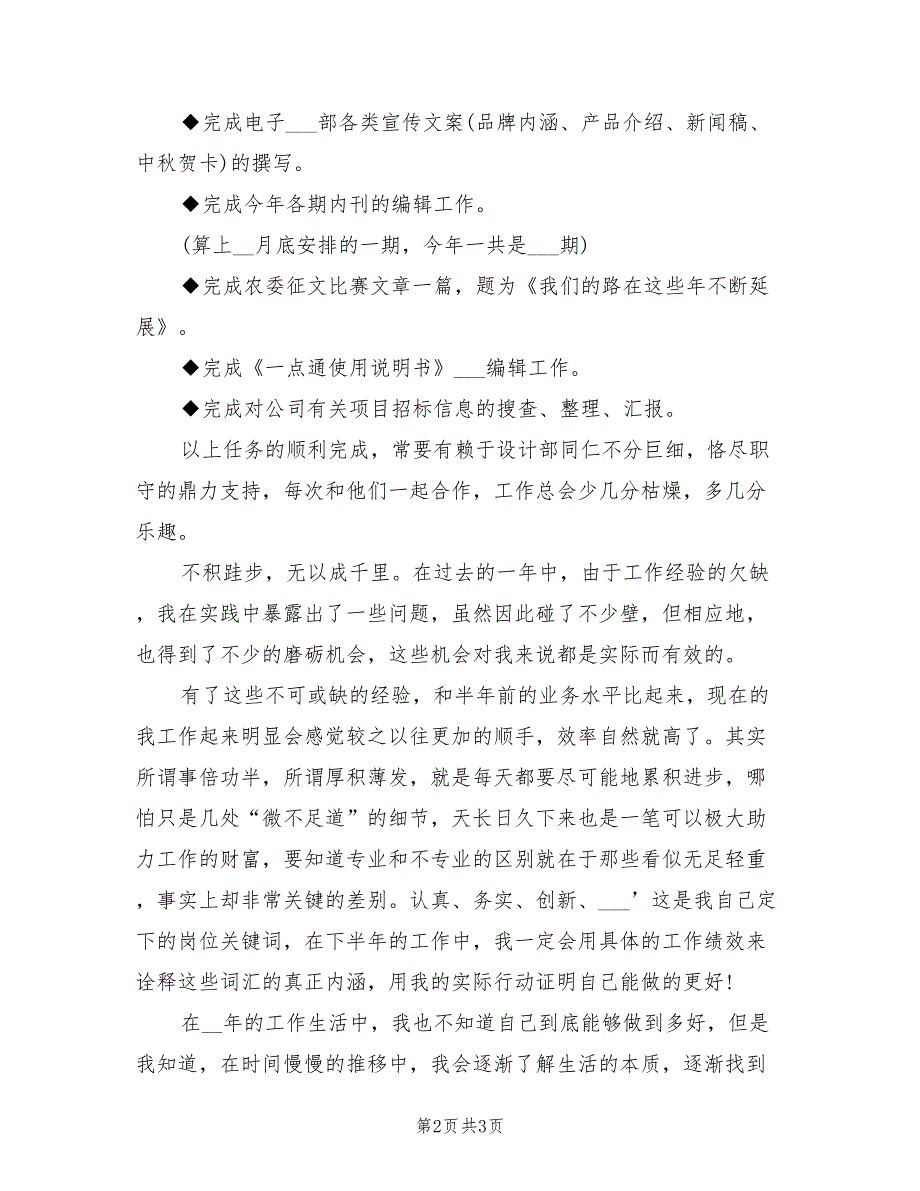 ◆完成电子___部各类宣传文案(品牌内涵、产品介绍、新闻稿、
中秋贺卡)的撰写。
◆完成今年各期内刊的编辑工作。
(算上__月底安排的一期，今年一共是___期)
◆完成农委征文比赛文章一篇，题为《我们的路在这些年不断延
展》。
◆完成《一点通使用说明书》___编辑工作。
◆完成对公司有关项目招标信息的搜查、整理、汇报。
以上任务的顺利完成，常要有赖于设计部同仁不分巨细，恪尽职
守的鼎力支持，每次和他们一起合作，工作总会少几分枯燥，多几分
乐趣。
不积跬步，无以成千里。在过去的一年中，由于工作经验的欠缺
，我在实践中暴露出了一些问题，虽然因此碰了不少壁，但相应地，
也得到了不少的磨砺机会，这些机会对我来说都是实际而有效的。
有了这些不可或缺的经验，和半年前的业务水平比起来，现在的
我工作起来明显会感觉较之以往更加的顺手，效率自然就高了。其实
所谓事倍功半，所谓厚积薄发，就是每天都要尽可能地累积进步，哪
怕只是几处“微不足道”的细节，天长日久下来也是一笔可以极大助
力工作的财富，要知道专业和不专业的区别就在于那些看似无足轻重
，事实上却非常关键的差别。认真、务实、创新、___’这是我自己定
下的岗位关键词，在下半年的工作中，我一定会用具体的工作绩效来
诠释这些词汇的真正内涵，用我的实际行动证明自己能做的更好!
在__年的工作生活中，我也不知道自己到底能够做到多好，但是
我知道，在时间慢慢的推移中，我会逐渐了解生活的本质，逐渐找到
第2页共3页